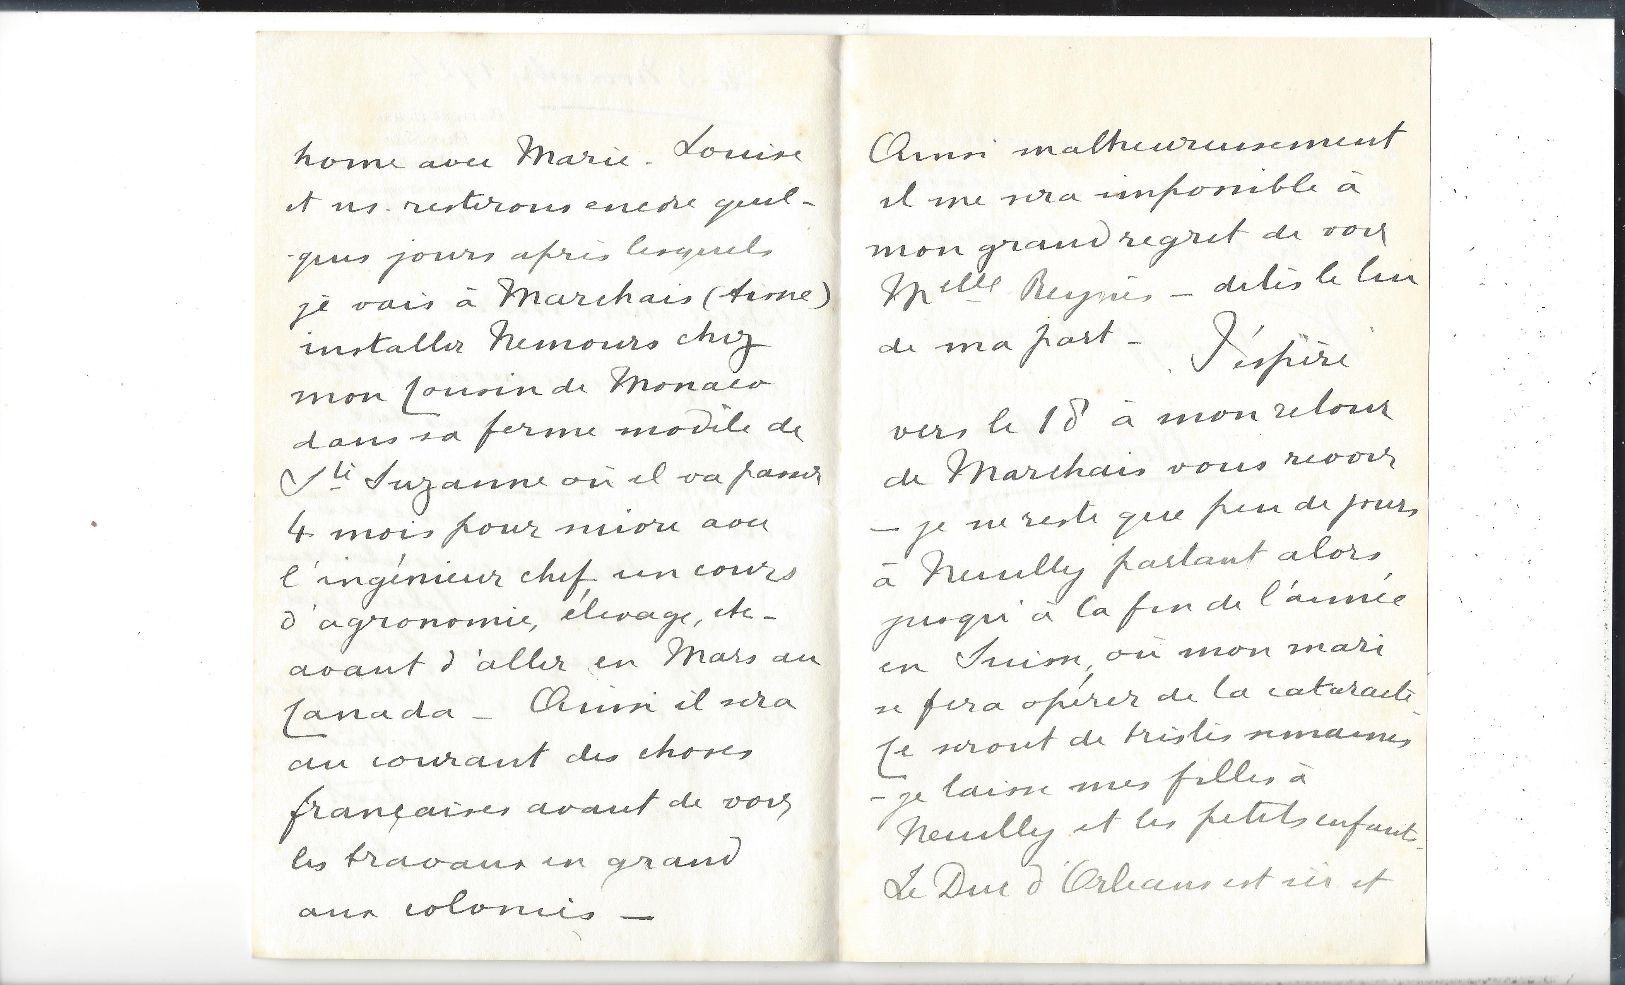 home avec Marie-Louise
et ns. resterons encore quel-
ques jours après lesquels
je vais à Marchais (Aisne)
installer Nemours chez
mon Cousin de Monaco
dans sa ferme modèle de
Ste Suzanne où il va passer
4 mois pour suivre avec
l'ingénieur chef un cours
d'agronomie, élevage, etc-
avant d'aller en Mars au
Canada - Ainsi il sera
au courant des choses
françaises avant de voir
les travaux en grand
aux colonies -
Ainsi malheureusement
il me sera impossible à
mon grand regret de voir
Melle - dites le lui
de ma part - J'espère
vers le 18 à mon retour
de Marchais vous revoir
- je ne reste que peu de jours
à Neuilly partant alors
jusqu'à la fin de l'année
en Suisse, où mon mari
se fera opérer de la cataracte.
Ce seront de tristes semaines
- je laisse mes filles à
Neuilly et les petits enfants.
Le Duc d'Orléans est ici et